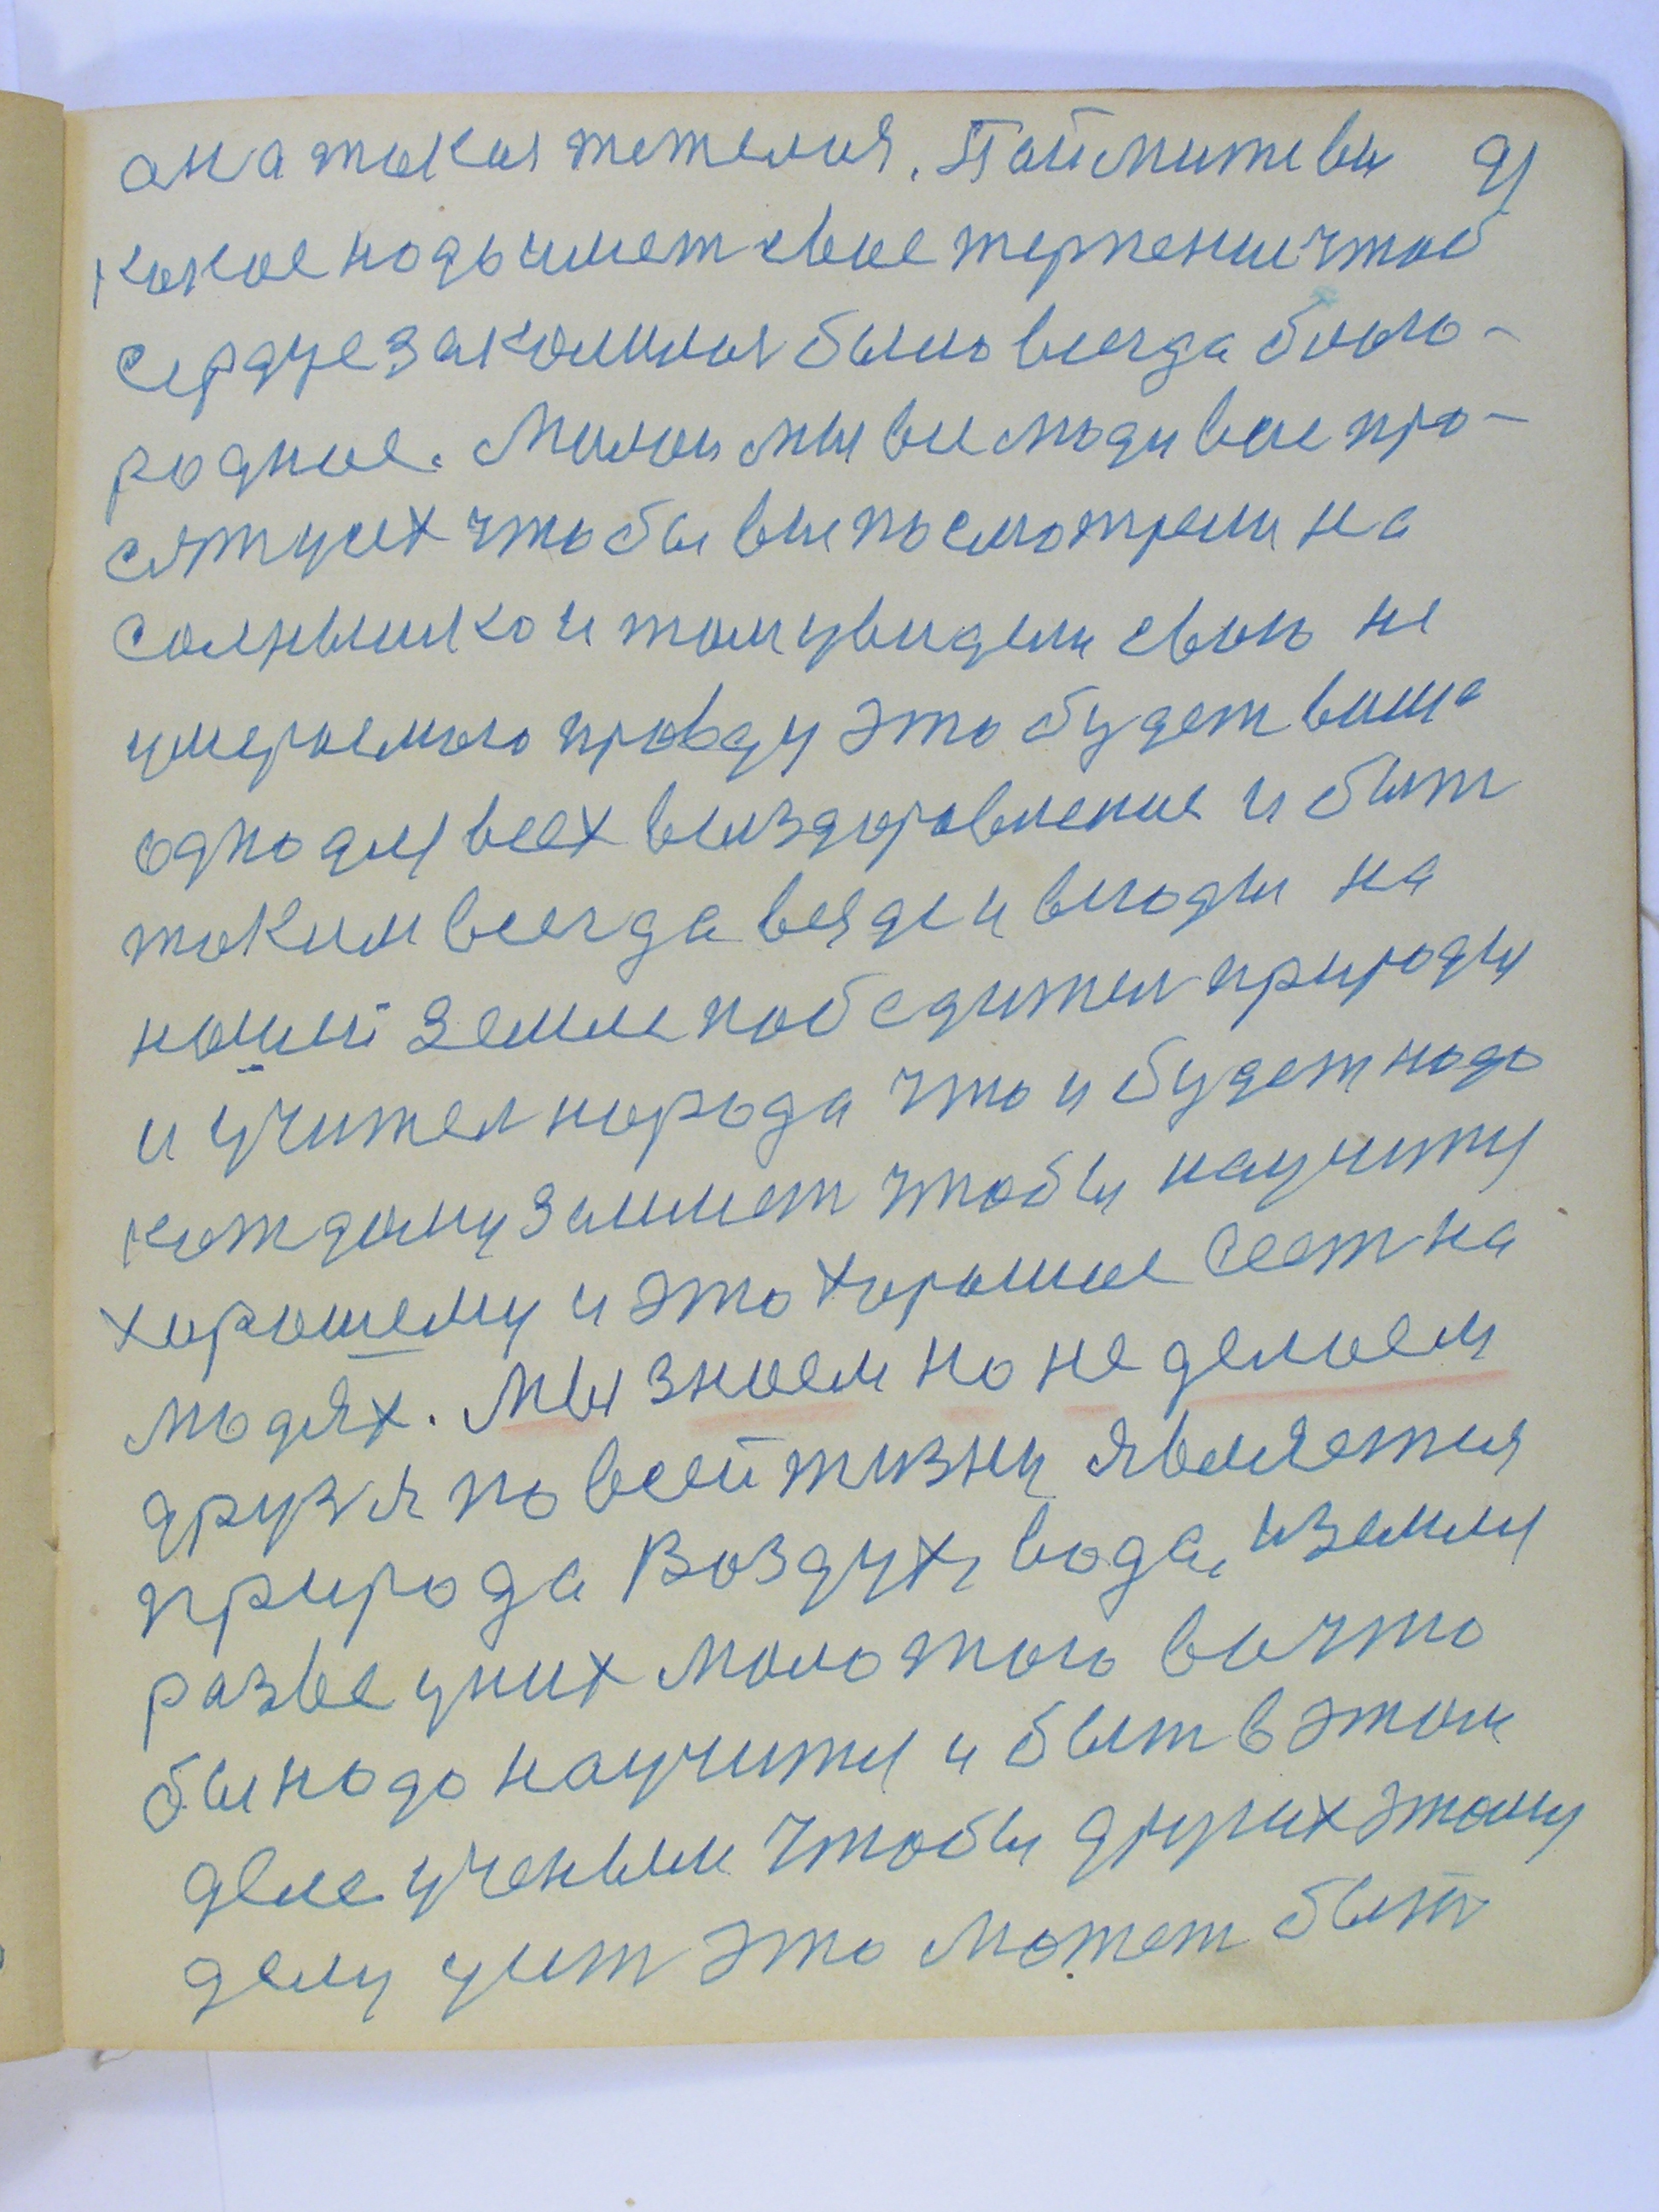 она такая тежелая. Поймите вы 91
какое надо имет свае терпение чтоб
сердце закалиноя было всегда благо-
родное. Милаи мы все люди вас про-
сят усих что бы вы посмотрели на
солнышко и там увидели свою не
умераемаю правду это будет ваша
одно для всех выздоровление и быт
таким всегда везде и всюды на
нашей земле победител природы
и учител народа что и будет надо
каждому заимет чтобы научится
хорошему и это хорошае сеет на
людях. Мы знаем но не делаем
друзя по всей жизни является
природа Воздух, вода, и земля
разве у них мало таго во что
бы надо научится и быт в этом
деле ученым чтобы других этому
делу учит это может быт